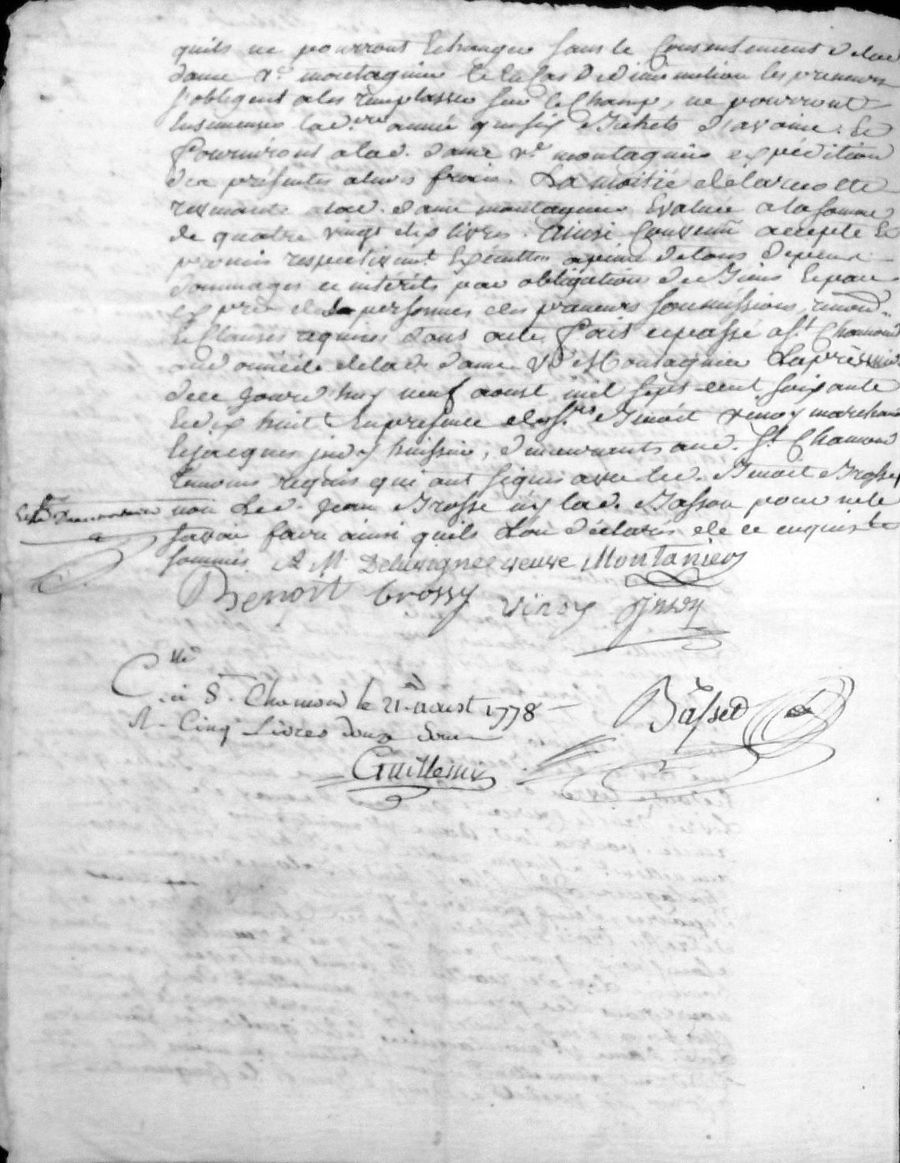 quils ne pourront Echanger sans le Consentement de lad
dame ve montagnier Et En Cas de diminution les preneurs
s'obligent a les remplasser sur le Champ, ne pourront
lad. année que six Bichets d'avoine. Et
fourniront a lad. dame ve montagnier expédition
des présentes a leurs frais. La moitié de la recolte
a lad. dame montagnier Evaluée a la somme
de quatre vingt dix livres. Ainsi Convenu accepté Et
promis respectivement Executter a peine de tous depens
dommages et intérêts par obligation de Biens Et par
exprès de la personnes des preneurs soumissions, renon.
Et Clauses requises dont acte, fait et passé a St Chamond
au domicile de lad. dame Ve Montagnier Lapres
de ce Jourd'huy neuf aoust mil sept cent soixante
Et dix huit En présence des Srs Benoit vinoy marchand
Et Jacques huissier, demeurants aud. St Chamond
temoins requis qui ont signés avec led. Benoit Brosse
non Led. Jean Brosse ny lad. Basson pour ne le
savoir faire ainsi quils L'on déclarés de ce enquis Et
sommés A M Delavigne veuve Montanier
Benoit brossy vinoy
C. lé
a St Chamond le 21 aoust 1778
R. Cinq Livres douze sous
Basset
Guillemin